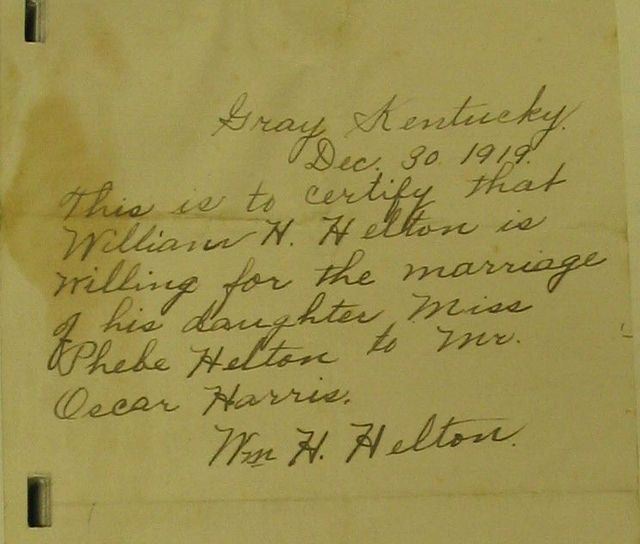 Gray, Kentucky.
Dec. 30. 1919.
This is to certify that
William H. Helton is
willing for the marriage
of his daughter Miss
Phebe Helton to Mr.
Oscar Harris.
Wm H. Helton.